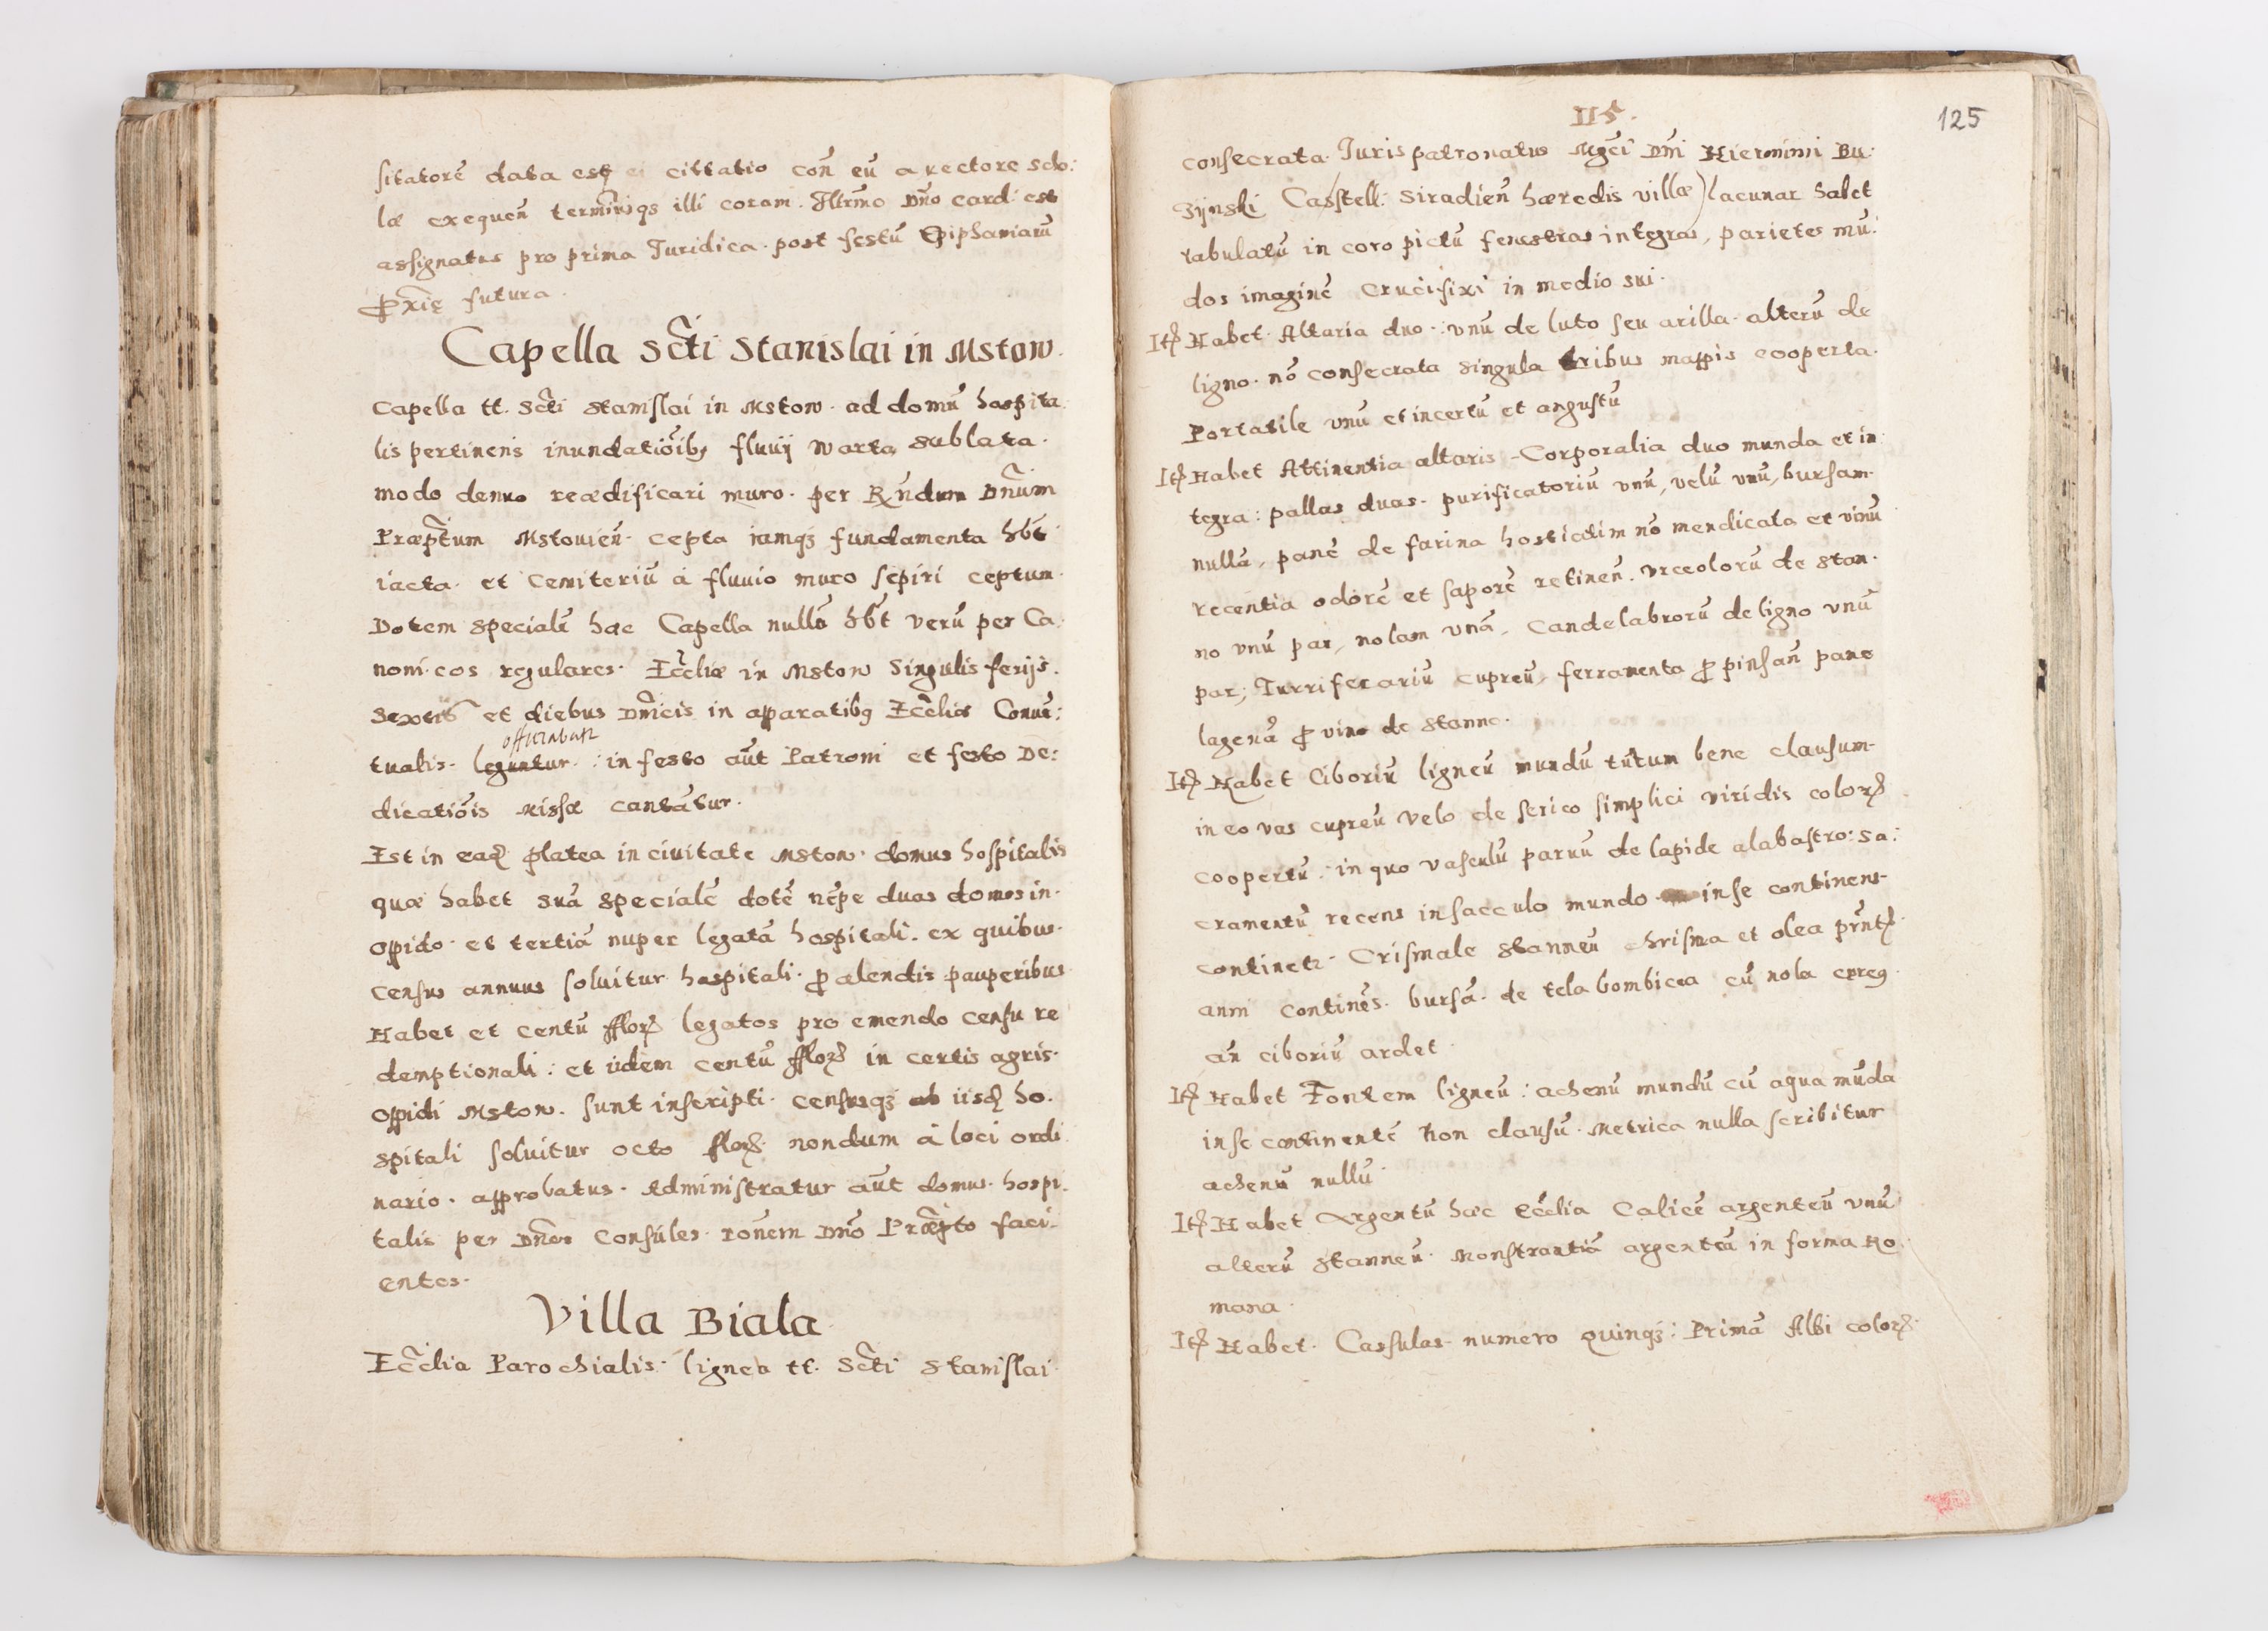 sitatorē data est ei cittatio con̄ eū a rectore scho:
læ exequen̄ terminusqs illi coram Illrmo Dn̄o card: est
assignatus pro prima Juridica post festū Epiphaniarū
ꝓxīe futura.
Capella Sc̄ti Stanislai in Mstow.
Capella tt. Sc̄ti Stanislai in Mstow ad domū hospita.
lis pertinens inundatiōibꝯ fluuij Warta sublata.
modo denuo reædificari muro. per Rn̄dum Dn̄um
Præp̄tum Mstouien̄. cepta iamqȝ fundamenta hb̄t
iacta. et Cemiteriū à fluuio muro sepiri ceptum.
Dotem specialē hæc Capella nullā hb̄t verū per Ca.
noni.cos regulares. Ecc̄liæ in Mstow singulis ferijs.
sextis et diebus Dn̄icis in apparatibꝯ Ecc̄liæ Conuē:
officiabatr
tualis. leguntur. : in festo aūt Patroni et festo De:
dicatiōis Missæ cantātur.
Est in eadꝫ platea in ciuitate Mstow. domus hospitalis
quæ habet suā specialē dotē nēpe duas domos in.
oppido. et tertiā nuper legatā hospitali. ex quibus.
census annuus soluitur hospitali. ꝓ alendis pauperibus
Habet et centū fflorꝫ legatos pro emendo censu re
demptionali: et iidem centū fflorꝫ in certis agris.
oppidi Mstow. sunt inscripti. censusqȝ ab iisdꝫ ho.
spitali soluitur octo florꝫ. nondum à loci ordi.
nario. approbatus. Administratur aūt domus. hospi.
talis per Dn̄os Consules. ron̄em Dn̄o Præp̄to faci.
entes.
Villa Biala
Ecc̄lia Parochialis. lignea tt. Sc̄ti Stanislai.
115.
125
consecrata. Juris patronatus Mgc̄i Dn̄i Hieronimi Bu.
zijnski Casstell: Siradien̄ hæredis villæ) lacunar habet
tabulatū in coro pictū fenestras integras, parietes mū.
dos imaginē Crucifixi in medio sui.
Itꝫ Habet. Altaria duo.: vnū de luto seu arilla. alterū de
ligno. nō consecrata singula tribus mappis cooperta.
Portatile vnū et incertū et angustū
Itꝫ Habet Attinentia altaris - Corporalia duo munda et in:
tegra: pallas duas. purificatoriū vnū, velū vnū, bursam.
nullā, panē de farina hosticatim nō mendicata et vinū
recentia odorē et saporē retinen̄. vrceolorū de stan.
no vnū par, nolam vnā, Candelabrorū de ligno vnū
par; Turriferariū cupreū, ferramenta ꝓ pinsan̄ pane
lagenā ꝓ vino de stanno.
Itꝫ Habet Ciboriū ligneū mundū tūtum bene clausum.
in eo vas cupreū velo de serico simplici viridis colorꝫ
coopertū: in quo vasculū paruū de lapide alabastro: sa:
cramentū recens in sacculo mundo in se continens.
continetr. Crismale stanneū chrisma et olea prn̄tꝫ.
anni continēs. bursā. de tela bombicea cū nola
an̄ ciboriū ardet.
Itꝫ Habet Fontem ligneū: achenū mundū cū aqua mūda
in se continentē non clausū. Metrica nulla scribitur
achenū nullū.
Itꝫ Habet Argentū hæc Ecc̄lia Calicē argenteū vnū
alterū stanneū. Monstrantiā argenteā in forma Ro
mana.
Itꝫ Habet. Cassulas. numero quinqȝ: Primā Albi colorꝫ.